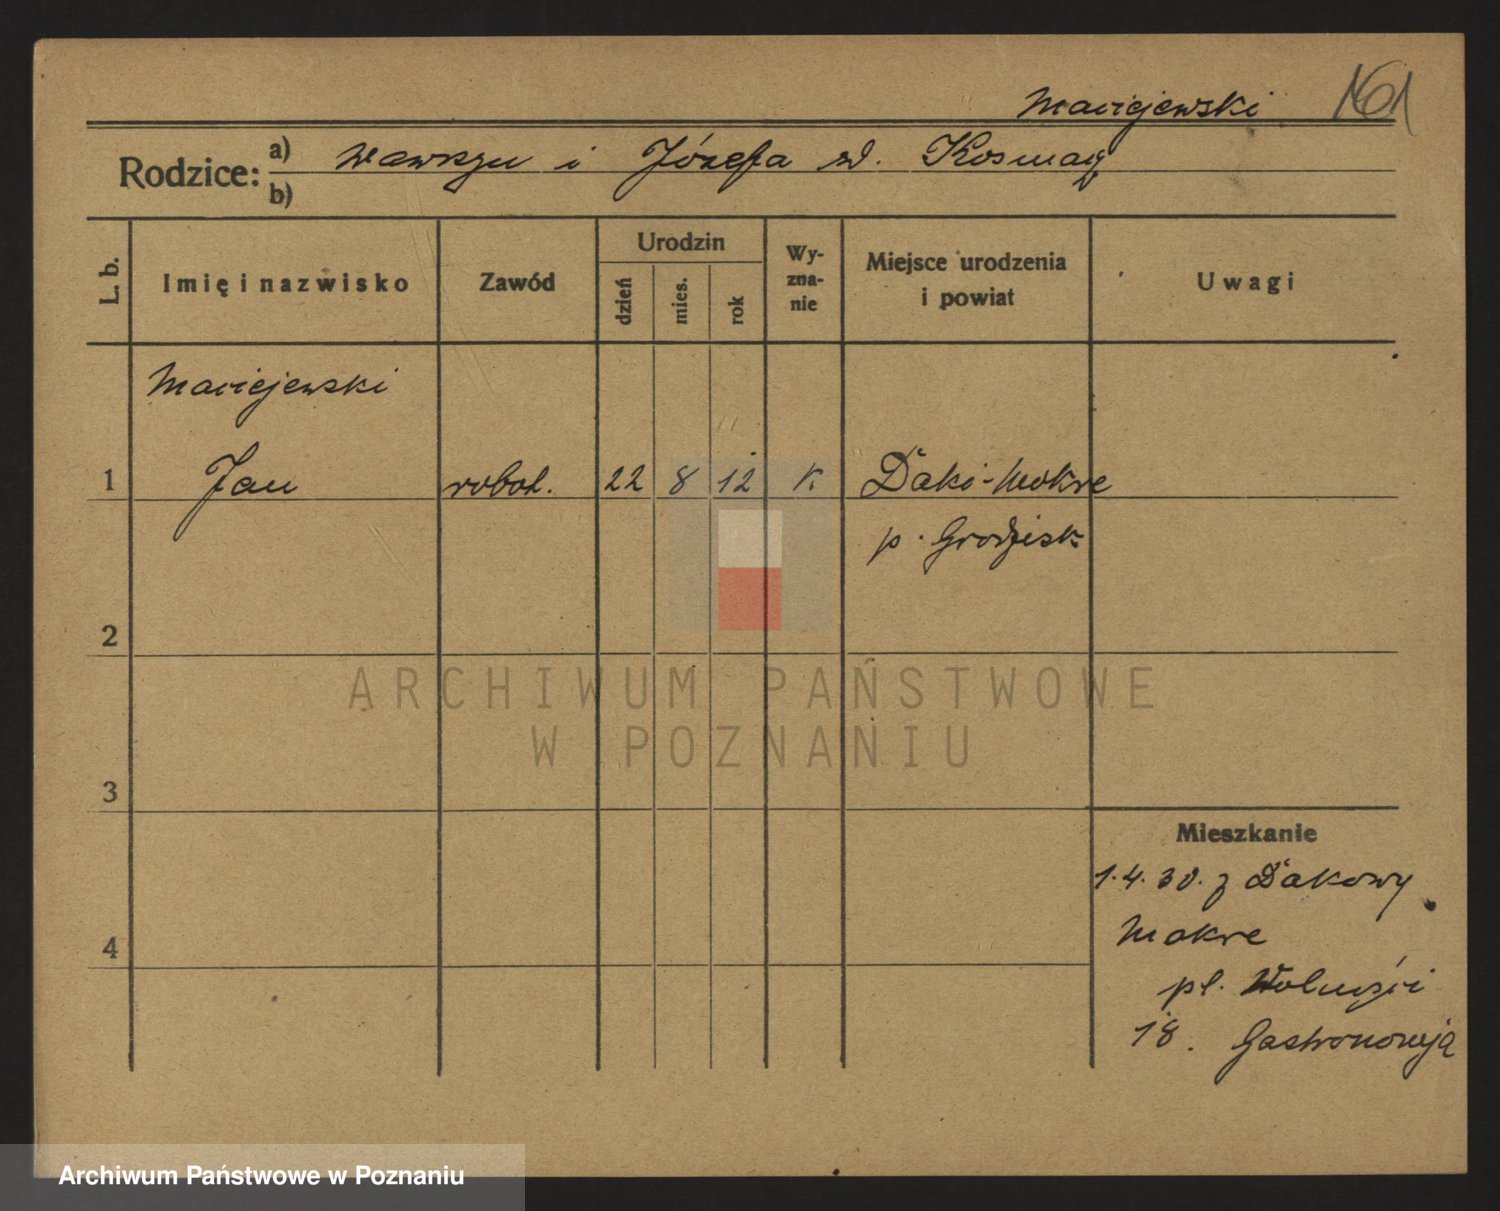 Maciejewski 161
Rodzice: a) Wawrzyn i Józefa zd.
b)
L. b.
Imię i nazwisko
Zawód
Urodzin
dzień
mies.
rok
Wy-
zna-
nie
Miejsce urodzenia
i powiat
Uwagi
Maciejewski
1 Jan robot. 22 8 12 k. Daki-Mokre
p. Grodzisk
2
ARCHIWUM PAŃSTWOWE
W POZNANIU
3
Mieszkanie
1.4.30. z Dakowy
Mokre
4
pl. Wolności
18. Gastronomja
Archiwum Państwowe w Poznaniu